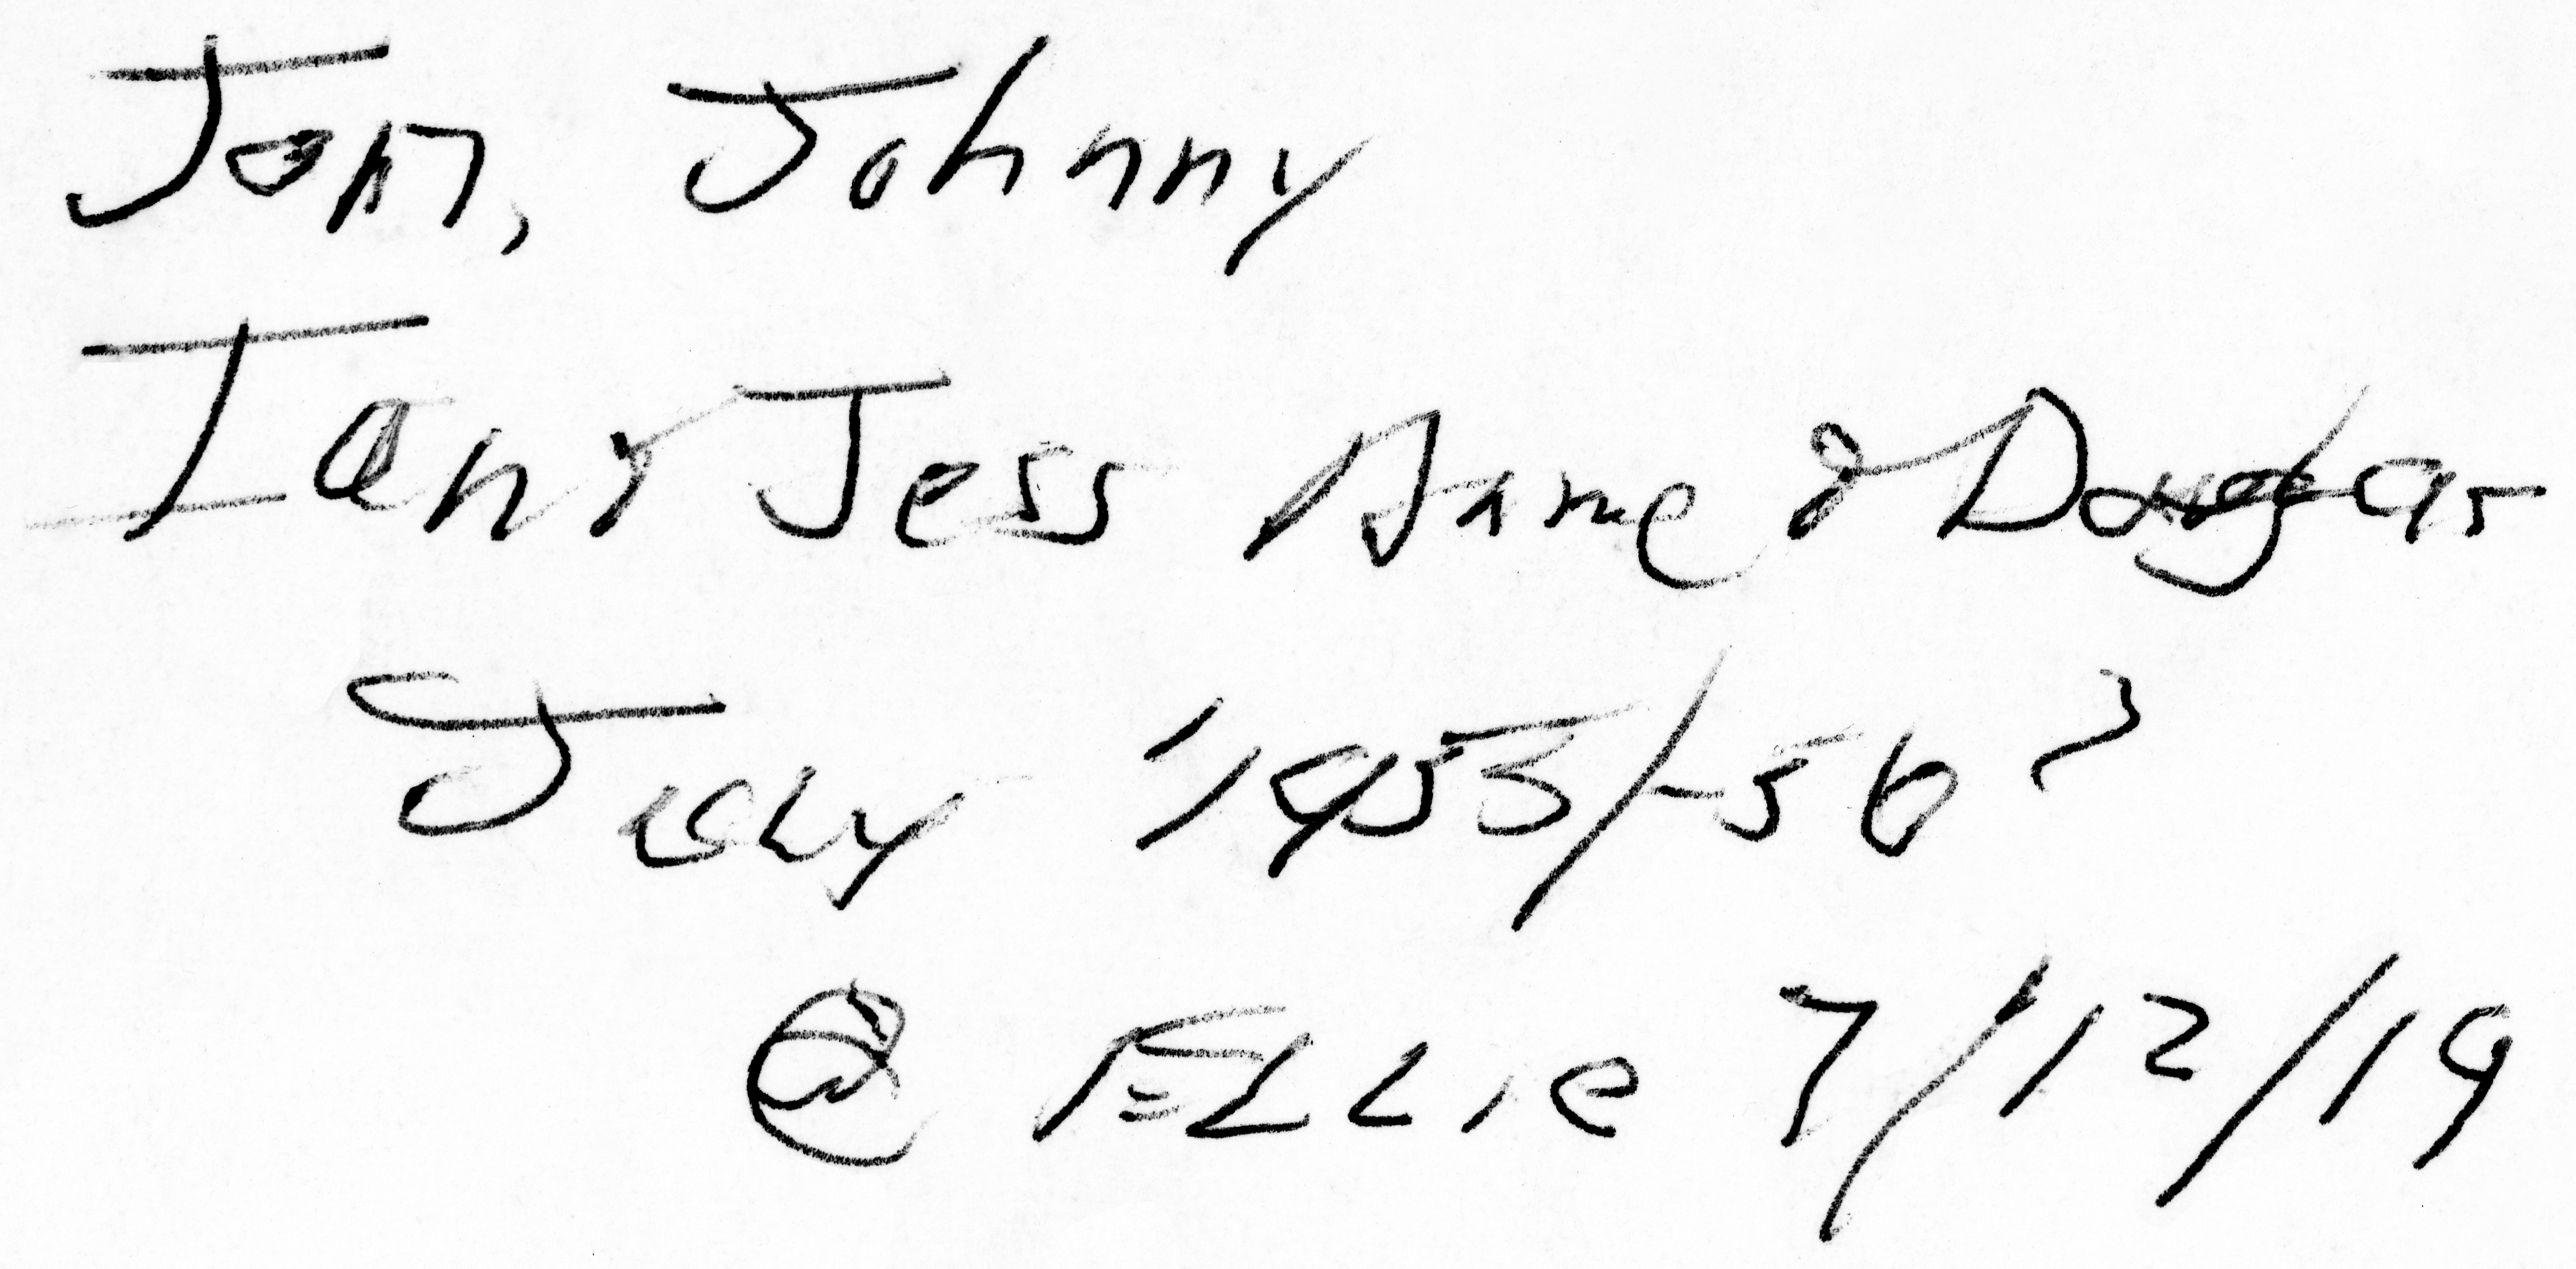 Jon, Johnny
Ian & Jess Anne & Douglas
July 1953/-56?
@ Ellie 7/12/19